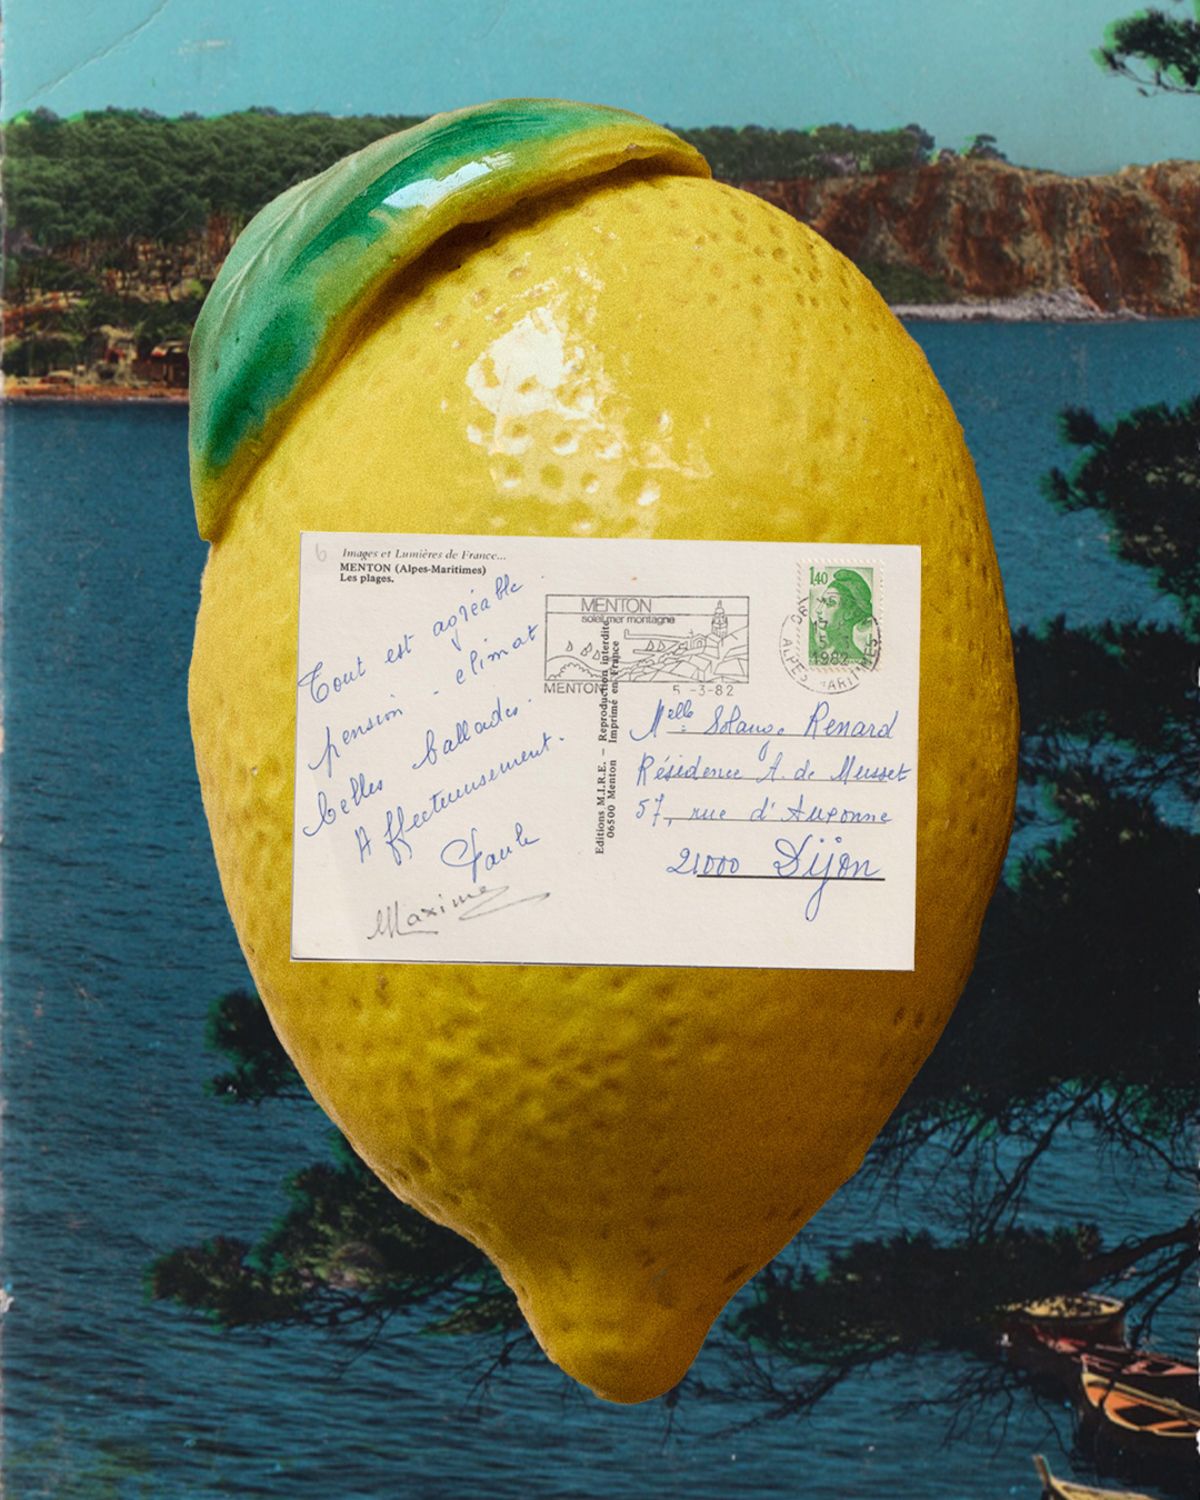 6
Images et Lumières de France...
MENTON (Alpes-Maritimes)
Les plages.
Tout est agréable.
pension - climat
belles ballades.
Affectueusement.
Paule
Maxime
MENTON
soleil mer montagne
MENTON 5 -3-82
Editions M.I.R.E. – Reproduction interdite
06500 Menton Imprimé en France
1,40
1982
ALPES MARITIMES
Melle Solange Renard
Résidence A. de Musset
57, rue d'Auxonne
21000 Dijon